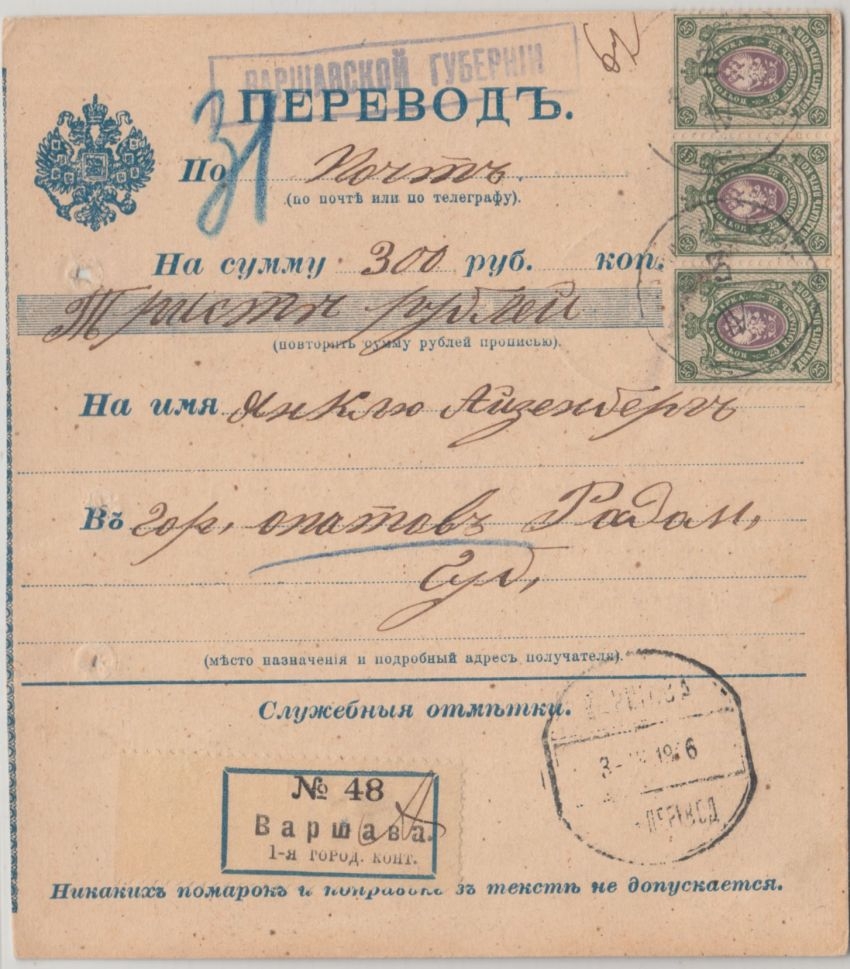 ВАРШАВСКОЙ ГУБЕРНІИ
ПЕРЕВОДЪ.
31
По Почтѣ.
(по почтѣ или по телеграфу).
На сумму 300 руб. коп.
Триста рублей
(повторить сумму рублей прописью).
На имя Янклю Айзенбергъ
Въ гор. опатовъ Радом,
Губ,
(мѣсто назначенія и подробный адресъ получателя).
Служебныя отмѣтки.
ВАРШАВА
ПЕРЕВОД
№ 48
Варшава.
1-я ГОРОД. КОНТ.
Никакихъ помарокъ и поправокъ въ текстѣ не допускается.